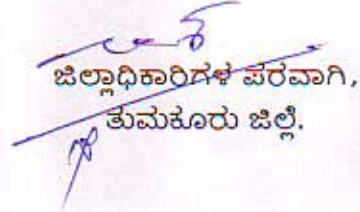 ಜಿಲ್ಲಾಧಿಕಾರಿಗಳ ಪರವಾಗಿ,
ತುಮಕೂರು ಜಿಲ್ಲೆ.